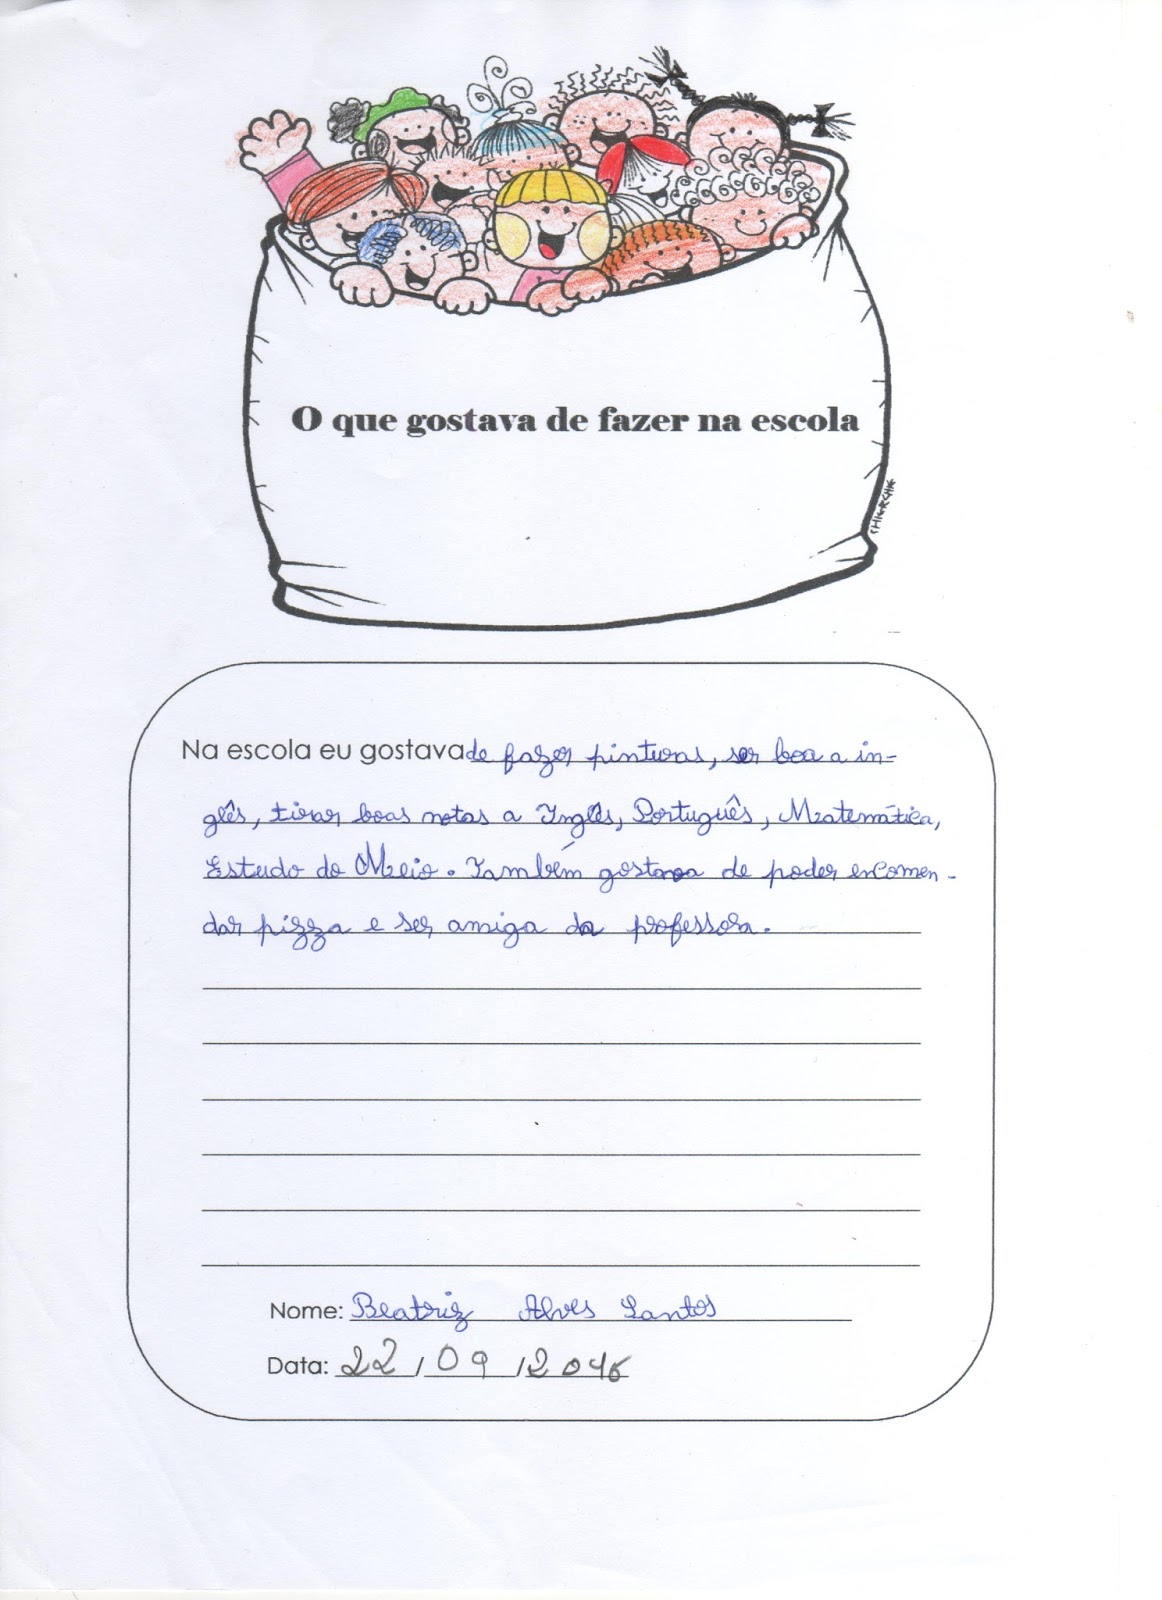 O que gostava de fazer na escola
CHIERCHIE
Na escola eu gostava de fazer pinturas, ser boa a in-
glês, tirar boas notas a Inglês, Português, Matemática,
Estudo do Meio. Também gostava de poder encomen-
dar pizza e ser amiga da professora.
Nome: Beatriz Alves Santos
Data: 22/09/2016